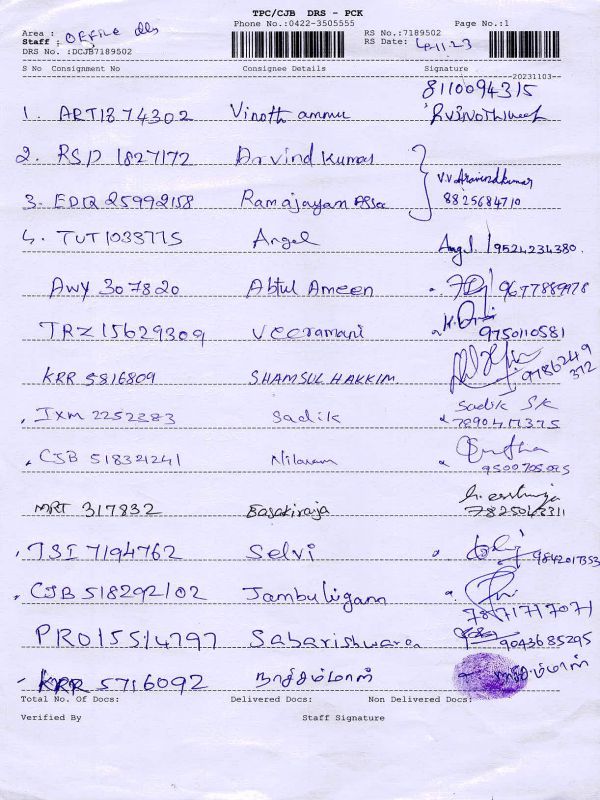 TPC/CJB DRS - PCK
Phone No.:0422-3505555 Page No.:1
Area : OFFile dls
Staff :
RS No.:7189502
RS Date: 4.11.23
DRS No. :DCJB7189502
--20231103--
S No Consignment No Consignee Details Signature
8110094315
1. ART1874302 Vinoth ammu
2. RSP 1827172 Arvind Kumar V.V Aravindkumar
3. EDQ 25992158 Ramajayam 8825684710
4. TUT1038775 Angel Angel /9524234380
AWY 307820 Abtul Ameen 9677889978
TRZ 15629309 Veeramani 9750110581
KRR 5816809 SHAMSUL HAKKIM. 9786249
372
IXM 2252283 Sadik Sadik SK
7890417375
CJB 518321241 Nilavam
9500705095
MRT 317832 Easakiraja
TSI 7194762 Selvi 9842017353
CJB 518292102 Jambulingam
7871717071
PRO15514797 Sabarishwaran 9043685295
KRR 5716092 நாச்சம்மாள் நாச்சம்மாள்
Total No. Of Docs: Delivered Docs: Non Delivered Docs:
Verified By Staff Signature